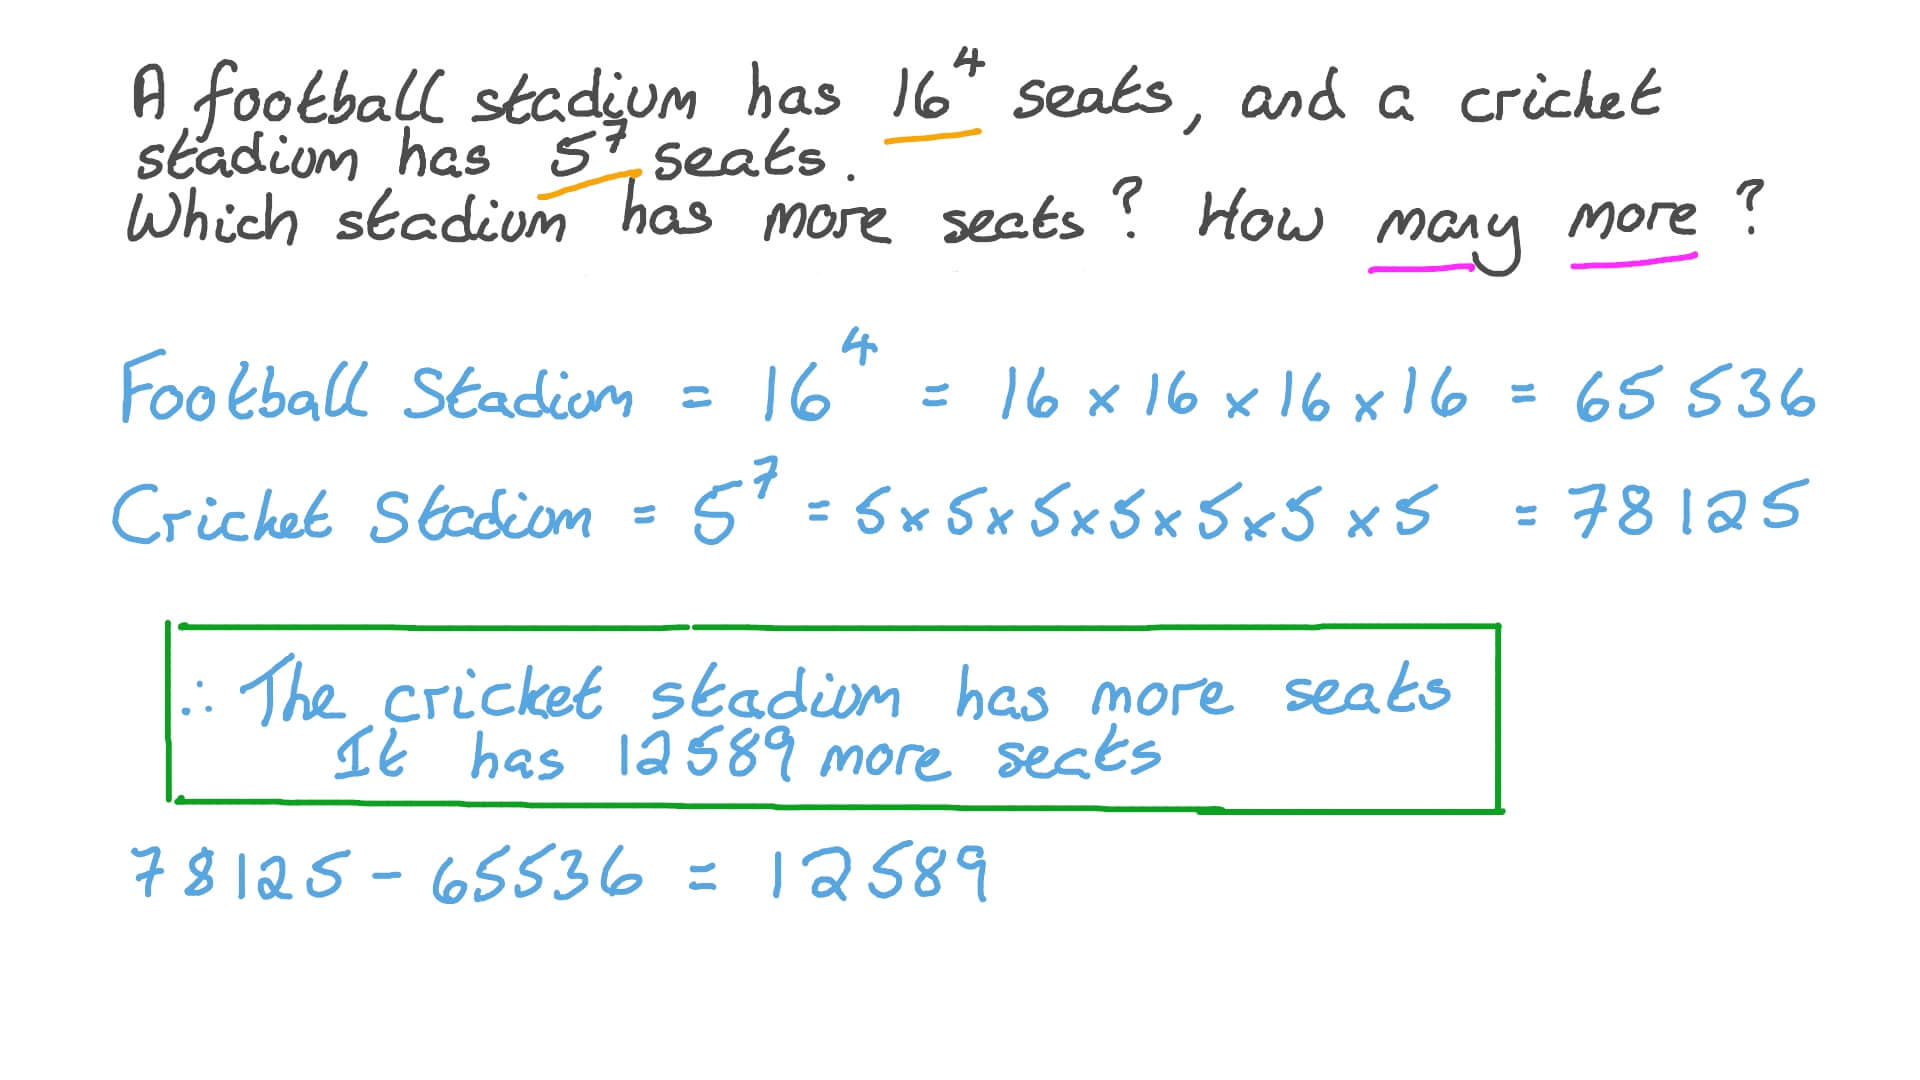 A football stadium has 16⁴ seats, and a cricket
stadium has 5⁷ seats.
Which stadium has more seats? How many more?
Football Stadium = 16⁴ = 16 × 16 × 16 × 16 = 65 536
Cricket Stadium = 5⁷ = 5 × 5 × 5 × 5 × 5 × 5 × 5 = 78 125
∴ The cricket stadium has more seats
It has 12589 more seats
78125 - 65536 = 12589